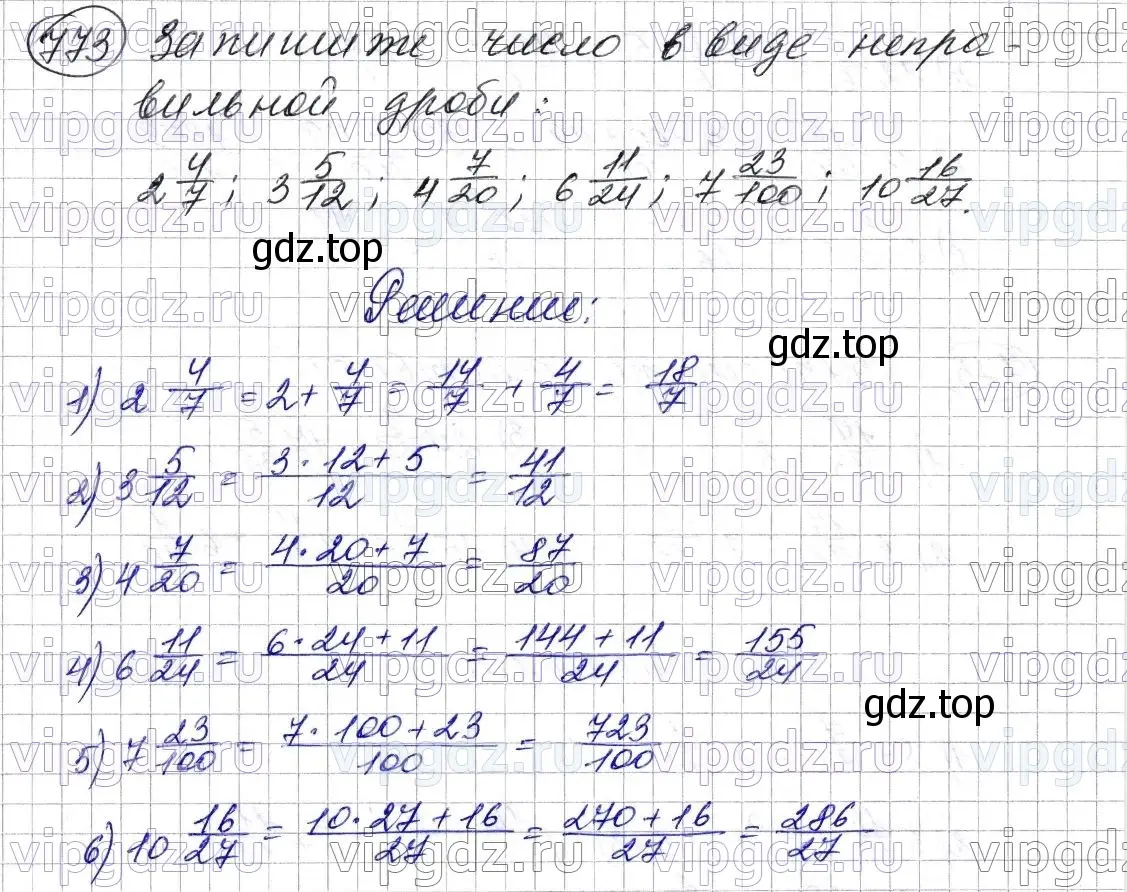 773 Запишите число в виде непра-
вильной дроби:
2 4/7; 3 5/12; 4 7/20; 6 11/24; 7 23/100; 10 16/27.
gdz.top
Решение:
gdz.top
1) 2 4/7 = 2 + 4/7 = 14/7 + 4/7 = 18/7
2) 3 5/12 = (3·12+5)/12 = 41/12
3) 4 7/20 = (4·20+7)/20 = 87/20
4) 6 11/24 = (6·24+11)/24 = (144+11)/24 = 155/24
gdz.top
5) 7 23/100 = (7·100+23)/100 = 723/100
6) 10 16/27 = (10·27+16)/27 = (270+16)/27 = 286/27
vipgdz.ru